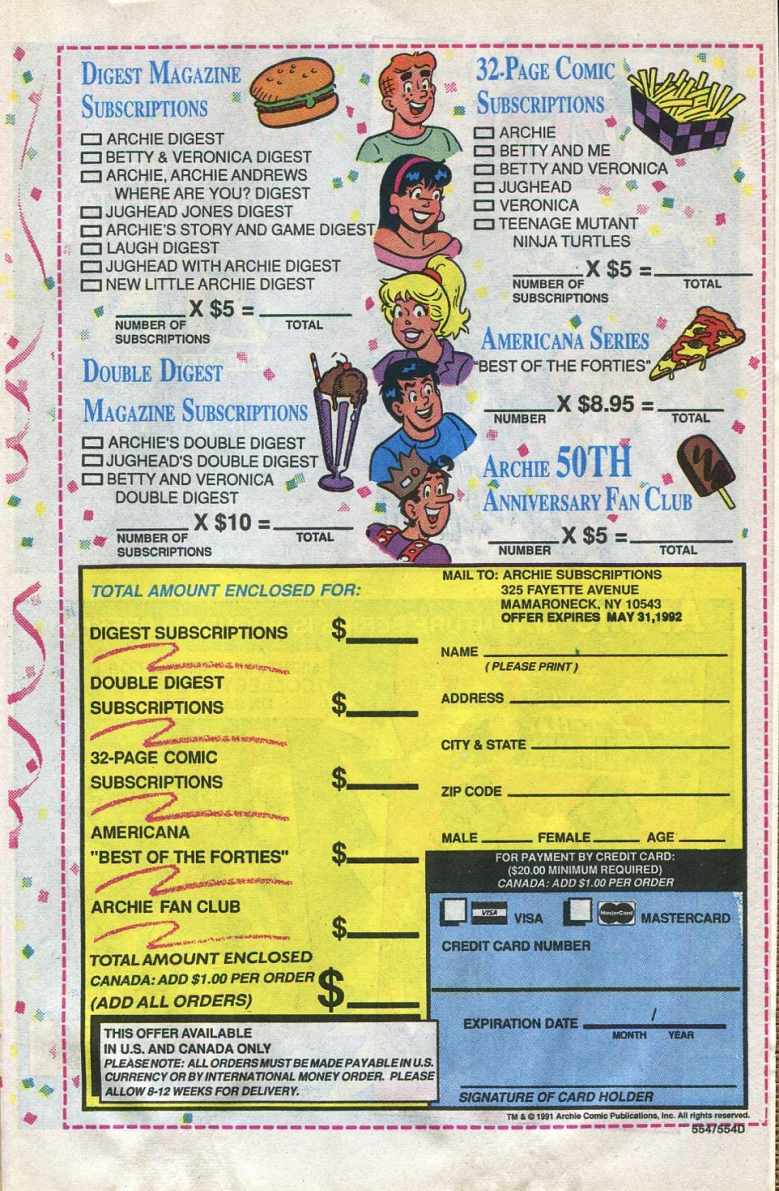 DIGEST MAGAZINE
SUBSCRIPTIONS
ARCHIE DIGEST
BETTY & VERONICA DIGEST
ARCHIE, ARCHIE ANDREWS
WHERE ARE YOU? DIGEST
JUGHEAD JONES DIGEST
ARCHIE'S STORY AND GAME DIGEST
LAUGH DIGEST
JUGHEAD WITH ARCHIE DIGEST
NEW LITTLE ARCHIE DIGEST
X $5 =
NUMBER OF TOTAL
SUBSCRIPTIONS
DOUBLE DIGEST
MAGAZINE SUBSCRIPTIONS
ARCHIE'S DOUBLE DIGEST
JUGHEAD'S DOUBLE DIGEST
BETTY AND VERONICA
DOUBLE DIGEST
X $10 =
NUMBER OF TOTAL
SUBSCRIPTIONS
32-PAGE COMIC
SUBSCRIPTIONS
ARCHIE
BETTY AND ME
BETTY AND VERONICA
JUGHEAD
VERONICA
TEENAGE MUTANT
NINJA TURTLES
X $5 =
NUMBER OF TOTAL
SUBSCRIPTIONS
AMERICANA SERIES
"BEST OF THE FORTIES"
X $8.95 =
NUMBER TOTAL
ARCHIE 50TH
ANNIVERSARY FAN CLUB
X $5 =
NUMBER TOTAL
TOTAL AMOUNT ENCLOSED FOR:
DIGEST SUBSCRIPTIONS $
DOUBLE DIGEST
SUBSCRIPTIONS $
32-PAGE COMIC
SUBSCRIPTIONS $
AMERICANA
"BEST OF THE FORTIES" $
ARCHIE FAN CLUB $
TOTAL AMOUNT ENCLOSED
CANADA: ADD $1.00 PER ORDER $
(ADD ALL ORDERS)
THIS OFFER AVAILABLE
IN U.S. AND CANADA ONLY
PLEASE NOTE: ALL ORDERS MUST BE MADE PAYABLE IN U.S.
CURRENCY OR BY INTERNATIONAL MONEY ORDER. PLEASE
ALLOW 8-12 WEEKS FOR DELIVERY.
MAIL TO: ARCHIE SUBSCRIPTIONS
325 FAYETTE AVENUE
MAMARONECK, NY 10543
OFFER EXPIRES MAY 31,1992
NAME
(PLEASE PRINT)
ADDRESS
CITY & STATE
ZIP CODE
MALE FEMALE AGE
FOR PAYMENT BY CREDIT CARD:
($20.00 MINIMUM REQUIRED)
CANADA: ADD $1.00 PER ORDER
VISA VISA MasterCard MASTERCARD
CREDIT CARD NUMBER
EXPIRATION DATE /
MONTH YEAR
SIGNATURE OF CARD HOLDER
TM & © 1991 Archie Comic Publications, Inc. All rights reserved.
554/554D